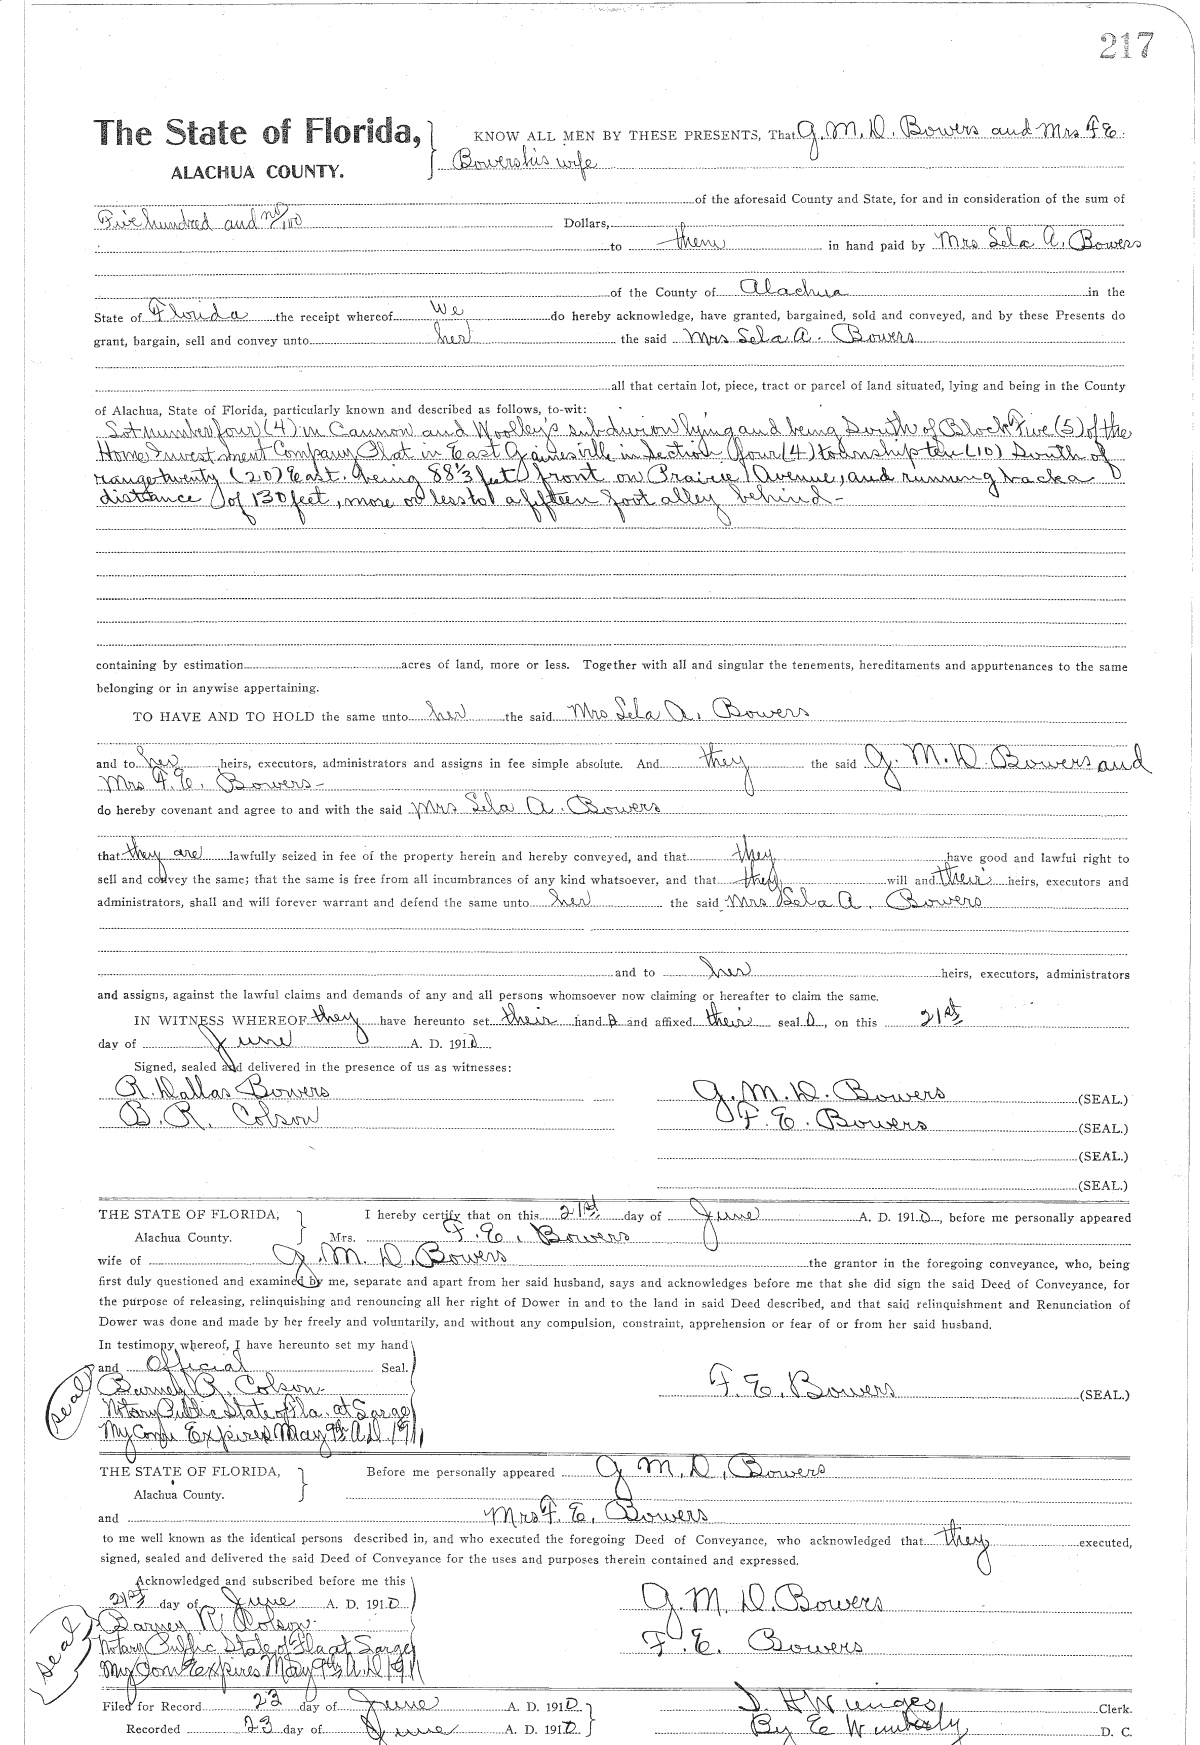 217
The State of Florida, KNOW ALL MEN BY THESE PRESENTS, That G. M. D. Bowers and Mrs F E.
ALACHUA COUNTY. Bowers his wife
of the aforesaid County and State, for and in consideration of the sum of
Five hundred and no/100 Dollars,
to them in hand paid by Mrs Sela A. Bowers
of the County of Alachua in the
State of Florida the receipt whereof We do hereby acknowledge, have granted, bargained, sold and conveyed, and by these Presents do
grant, bargain, sell and convey unto her the said Mrs Sela A. Bowers
all that certain lot, piece, tract or parcel of land situated, lying and being in the County
of Alachua, State of Florida, particularly known and described as follows, to-wit:
Lot number four (4) in Cannon and Woolley's subdivion lying and being South of Block Five (5) of the
Home Investment Company Plat in East Gainesville in Section four (4) township ten (10) South of
range twenty (20) East. being 88 1/3 feet front on Prairie Avenue, and running back a
distance of 130 feet, more or less to a fifteen foot alley behind-
containing by estimation acres of land, more or less. Together with all and singular the tenements, hereditaments and appurtenances to the same
belonging or in anywise appertaining.
TO HAVE AND TO HOLD the same unto her the said Mrs Sela A. Bowers
and to her heirs, executors, administrators and assigns in fee simple absolute. And they the said G. M. D Bowers and
Mrs F. E. Bowers-
do hereby covenant and agree to and with the said Mrs Sela A. Bowers
that they are lawfully seized in fee of the property herein and hereby conveyed, and that they have good and lawful right to
sell and convey the same; that the same is free from all incumbrances of any kind whatsoever, and that they will and their heirs, executors and
administrators, shall and will forever warrant and defend the same unto her the said Mrs Sela A. Bowers
and to her heirs, executors, administrators
and assigns, against the lawful claims and demands of any and all persons whomsoever now claiming or hereafter to claim the same.
IN WITNESS WHEREOF they have hereunto set their hand s and affixed their seal s, on this 21st
day of June A. D. 1910.
Signed, sealed and delivered in the presence of us as witnesses:
R. Dallas Bowers G. M. D. Bowers (SEAL.)
B. R. Colson F. E. Bowers (SEAL.)
(SEAL.)
(SEAL.)
THE STATE OF FLORIDA, I hereby certify that on this 21st day of June A. D. 1910, before me personally appeared
Alachua County. Mrs. F. E. Bowers
wife of G. M. D. Bowers the grantor in the foregoing conveyance, who, being
first duly questioned and examined by me, separate and apart from her said husband, says and acknowledges before me that she did sign the said Deed of Conveyance, for
the purpose of releasing, relinquishing and renouncing all her right of Dower in and to the land in said Deed described, and that said relinquishment and Renunciation of
Dower was done and made by her freely and voluntarily, and without any compulsion, constraint, apprehension or fear of or from her said husband.
In testimony whereof, I have hereunto set my hand
and Official Seal.
seal Barney R. Colson. F. E. Bowers (SEAL.)
Notary Public State of Fla. at Large
My Com Expires May 9th A.D. 1911
THE STATE OF FLORIDA, Before me personally appeared G M. D. Bowers
Alachua County.
and Mrs F. E. Bowers
to me well known as the identical persons described in, and who executed the foregoing Deed of Conveyance, who acknowledged that they executed,
signed, sealed and delivered the said Deed of Conveyance for the uses and purposes therein contained and expressed.
Acknowledged and subscribed before me this
21st day of June A. D. 1910 G. M. D. Bowers
Barney R Colson.
seal Notary Public State of Fla at Large F. E. Bowers
My Com Expires May 9th A.D 1911
Filed for Record 23 day of June A. D. 1910 S. H Wienges Clerk.
Recorded 23 day of June A. D. 1910. By E Wimberly D. C.